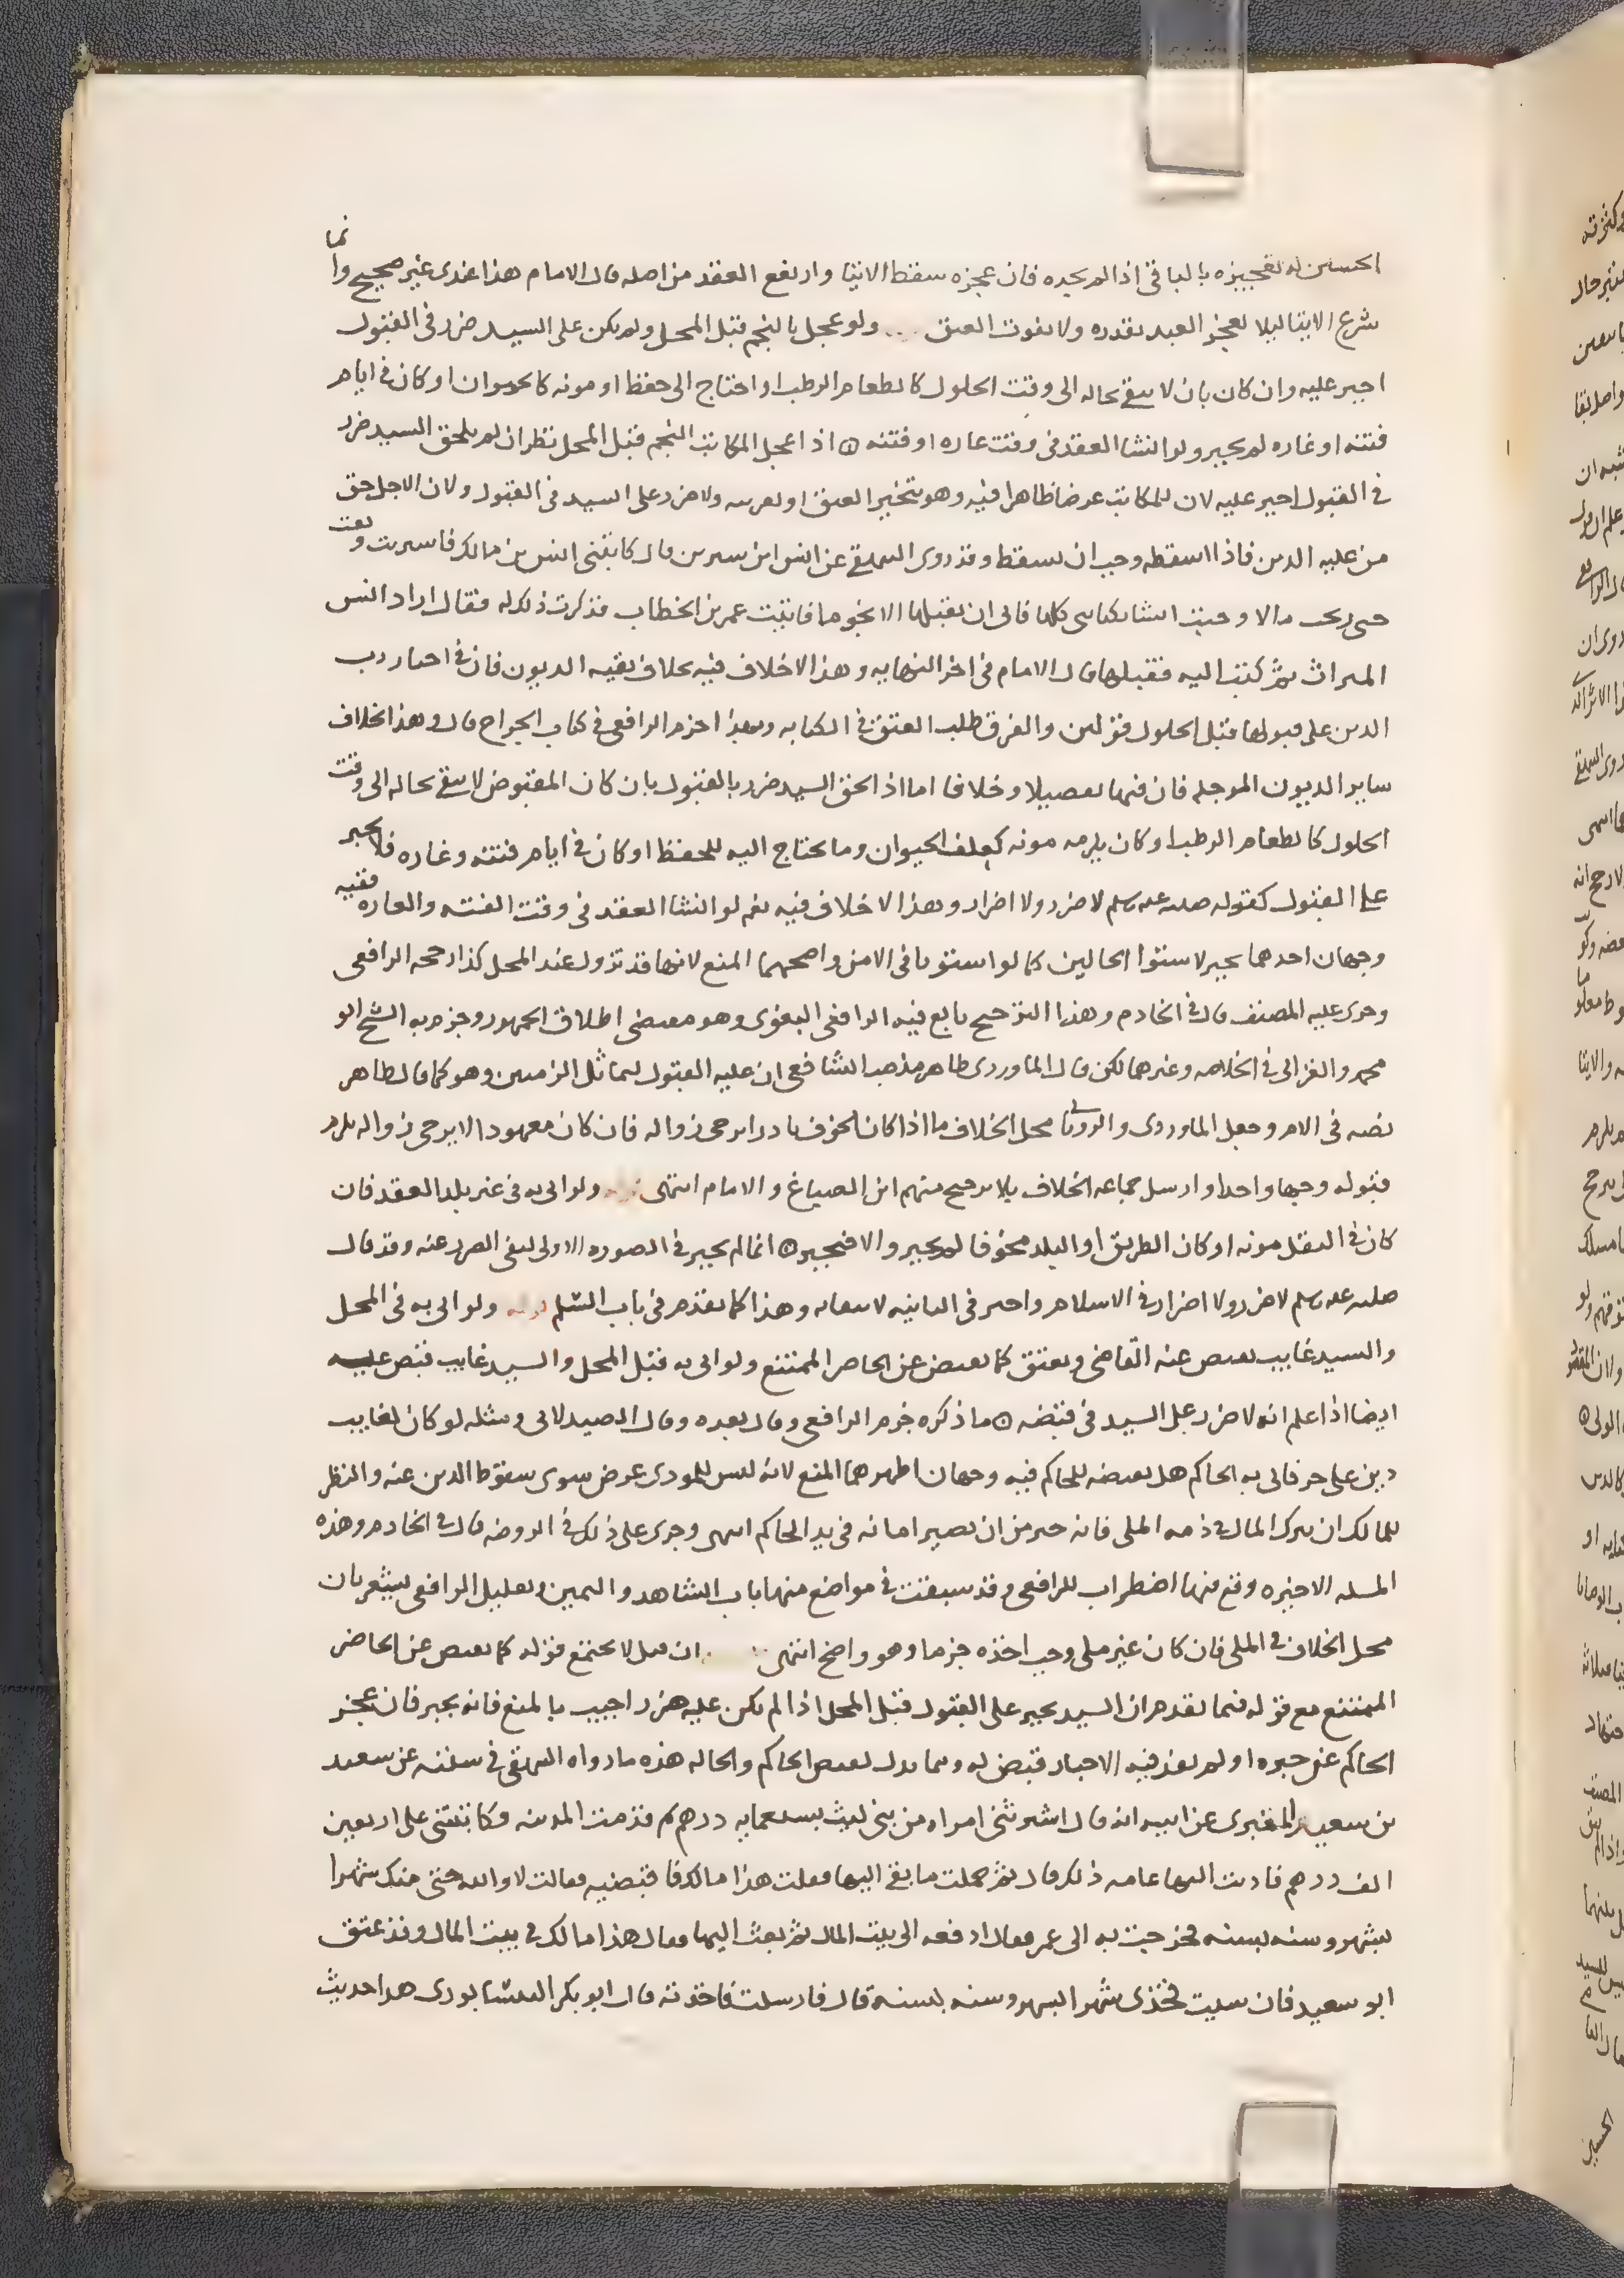 الحسين له تعجيزه بالباقي اذا لم يجده فان عجزه سقط الايتا وارتفع العقد من اصله قال الامام هذا عندي غير صحيح وانما
شرع الايتا ليلا يعجز العبد بقدره ولا يفوت العتق ولو عجل بالنجم قبل المحل ولم يكن على السيد ضرر في القبول
اجبر عليه وان كان بان لا يبقى بحاله الى وقت الحلول كالطعام الرطب او احتاج الى حفظ او مونه كالحيوان او كان في ايام
فتنه او غاره لم يجبر ولو انشا العقد في وقت غاره او فتنه ۞ اذا عجل المكاتب النجم قبل المحل نظر ان لم يلحق السيد ضرر
في القبول اجبر عليه لان للمكاتب غرضا ظاهرا فيه وهو تنجيز العتق او تقريبه ولا ضرر على السيد في القبول ولان الاجل حق
من عليه الدين فاذا اسقطه وجب ان يسقط وقد روى البيهقي عن انس ابن سيرين قال كاتبني انس بن مالك
الا نجوما فاتيت عمر بن الخطاب فذكرت ذلك له فقال اراد انس
الميراث ثم كتب اليه فقبلها قال الامام في اخر النهايه وهذا لا خلاف فيه بخلاف بقيه الديون فان في اجبار رب
الدين على قبولها قبل الحلول قولين والفرق طلب العتق في الكتابه وبهذا اجزم الرافعي في كتاب الجراح قال وهذا بخلاف
ساير الديون الموجله فان فيها تفصيلا وخلافا اما اذا لحق السيد ضرر بالقبول بان كان المقبوض لا يبقى بحاله الى وقت
الحلول كالطعام الرطب او كان يلزمه مونه كعلف الحيوان وما يحتاج اليه للحفظ او كان في ايام فتنه وغاره فلا يجبر
على القبول كقوله صلى الله عليه وسلم لا ضرر ولا اضرار وهذا لا خلاف فيه نعم لو انشا العقد في وقت الفتنه والغاره ففيه
وجهان احدهما يجبر لاستوا الحالين كما لو استويا في الامن واصحهما المنع لانها قد تزول عند المحل كذا رجحه الرافعي
وجرى عليه المصنف قال في الخادم وهذا الترجيح تابع فيه الرافعي البغوي وهو مقتضى اطلاق الجمهور وجزم به الشيخ ابو
محمد والغزالي في الخلاصه وغيرهما لكن قال الماوردي ظاهر مذهب الشافعي ان عليه القبول لتماثل الزمنين وهو كما قال ظاهر
نصه في الام وجعل الماوردي والروياني محل الخلاف ما اذا كان الخوف نادرا يرجى زواله فان كان معهودا لا يرجى زواله يلزم
قبوله وجها واحدا وارسل جماعه الخلاف بلا ترجيح منهم ابن الصباغ والامام انتهى ولو اتى به في غير بلد العقد فان
كان في النقل مونه او كان الطريق او البلد مخوفا لم يجبر والا فيجبر ۞ انما لم يجبر في الصوره الاولى لنفي الضرر عنه وقد قال
صلى الله عليه وسلم لا ضرر ولا اضرار في الاسلام واجبر في الثانيه لانتفايه وهذا كما تقدم في باب السلم ولو اتى به في المحل
والسيد غايب يقبض عنه القاضي ويعتق كما يقبض عن الحاضر الممتنع ولو اتى به قبل المحل والسيد غايب قبض عليه
ايضا اذا علم انه لا ضرر على السيد في قبضه ۞ ما ذكره جزم الرافعي وقال بعده وقال الصيدلاني ومثله لو كان لغايب
دين على حر فاتى به الحاكم هل يقبضه للحاكم فيه وجهان اظهرهما المنع لانه ليس للمودى غرض سوى سقوط الدين عنه والنظر
للمالك ان يترك المال في ذمه الملي فانه خير من ان يصير امانه في يد الحاكم انتهى وجرى على ذلك في الروضه قال في الخادم وهذه
المسله الاخيره وقع فيها اضطراب للرافعي وقد سبقت في مواضع منها باب الشاهد واليمين وتعليل الرافعي يشعر بان
محل الخلاف في الملي فان كان غير ملي وجب اخذه جزما وهو واضح انتهى ان قيل لا يجتمع قوله كما يقبض عن الحاضر
الممتنع مع قوله فيما تقدم ان السيد يجبر على القبول قبل المحل اذا لم يكن عليه ضرر اجيب بالمنع فانه يجبر فان عجز
الحاكم عن جبره او لم يفد فيه الاجبار قبض له ومما يدل لقبض الحاكم والحاله هذه ما رواه البيهقي في سننه عن سعيد
بن سعيد المقبري عن ابيه انه قال اشترتني امراه من بني ليث بسبعمايه درهم ثم قدمت المدينه فكاتبتني على اربعين
الف درهم فاديت اليها عامه ذلك قال ثم حملت ما بقي اليها فقلت هذا مالك فاقبضيه فقالت لا والله حتى منك شهرا
بشهر وسنه بسنه فخرجت به الى عمر فقال ادفعه الى بيت المال ثم بعث اليها فقال هذا مالك في بيت المال وقد عتق
ابو سعيد فان شيت فخذي شهرا بشهر وسنه بسنه قال فارسلت فاخذته قال ابو بكر النيسابوري هذا حديث